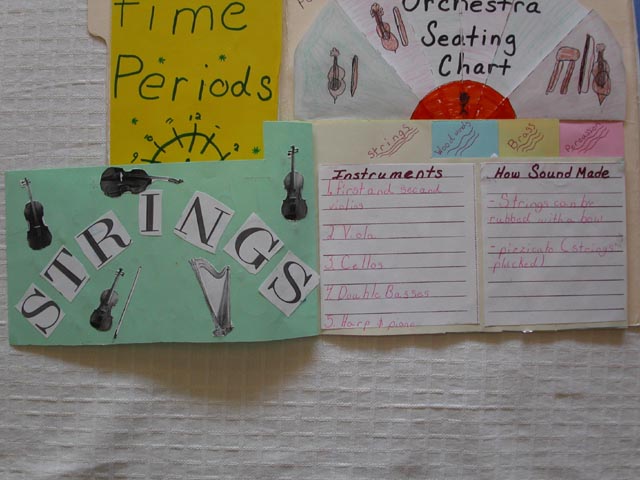 Time
Periods
Orchestra
Seating
Chart
Strings
Woodwinds
Brass
Percussion
STRINGS
Instruments
1. First and second
violins
2. Viola
3. Cellos
4. Double Basses
5. Harp & piano
How Sound Made
- Strings can be
rubbed with a bow
- pizzicato (strings
plucked)